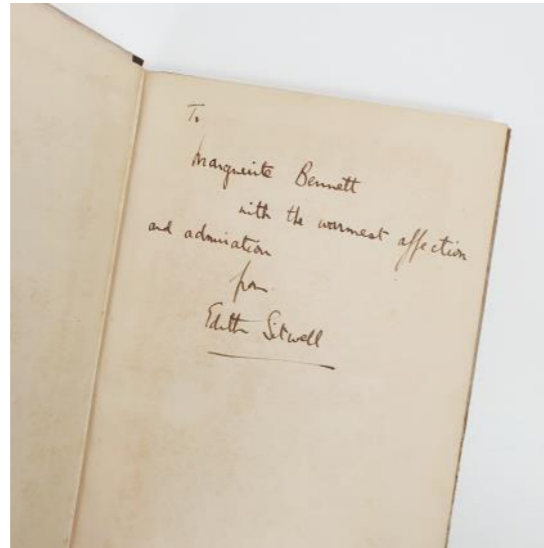 To
Marguerite Bennett
with the warmest affection
and admiration
from
Edith Sitwell